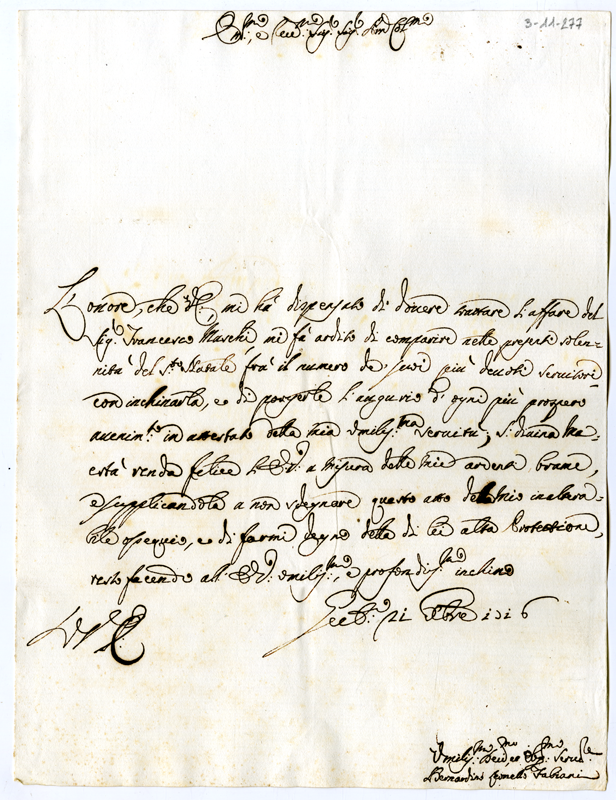 3-11-277
Em.mo, e Rev.mo Sig. Sig. P.rone Col.mo
L'onore, che V.E. mi hà dispensato di dovere trattare l'affare del
Sig.r Francesco Maschi, mi fà ardito di comparire nelle presenti solen-
nità del S.to Natale frà il numero de' suoi più devoti servitori
con inchinarla, e di porgerle l'augurio d'ogni più prospero
avenim.to in attestato della mia umiliss.ma servitù; S. divina Ma-
està renda felice l'E.V. a misura delle mie ardenti brame,
e supplicandola a non sdegnare questo atto del mio inaltera-
bile ossequio, e di farmi degno della di lei alta Protettione,
resto facendo all'E.V. umiliss.mo, e profondiss.mo inchino
21 Xbre 1716
Umiliss.mo Dev.mo ed Obl.mo Serv.re
Bernardino Leonelli Fabiani